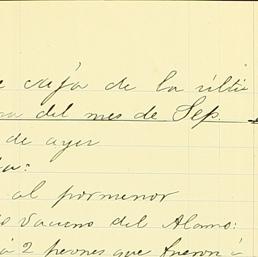 caja de la últi
del mes de Sep.
de ayer
al pormenor
vacuno del Alamo:
á 2 peones que fueron á